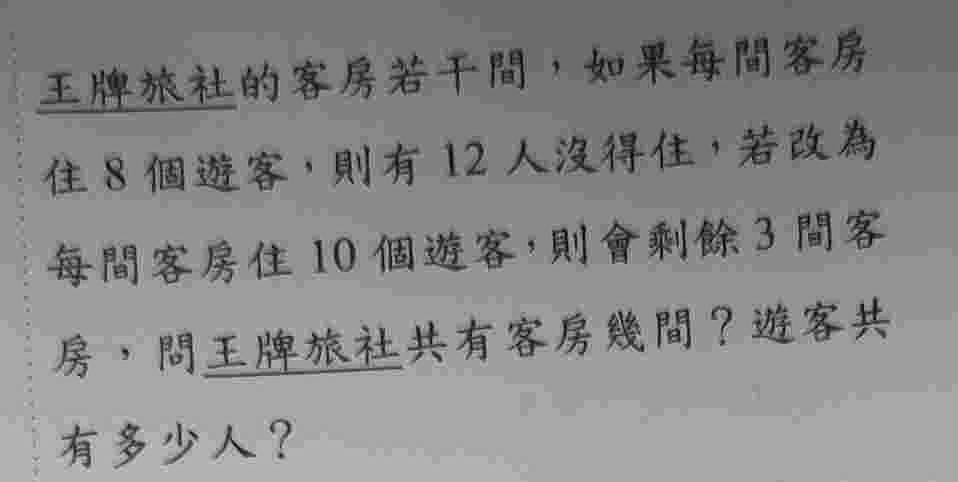 王牌旅社的客房若干間，如果每間客房
住 8 個遊客，則有 12 人沒得住，若改為
每間客房住 10 個遊客，則會剩餘 3 間客
房，問王牌旅社共有客房幾間？遊客共
有多少人？